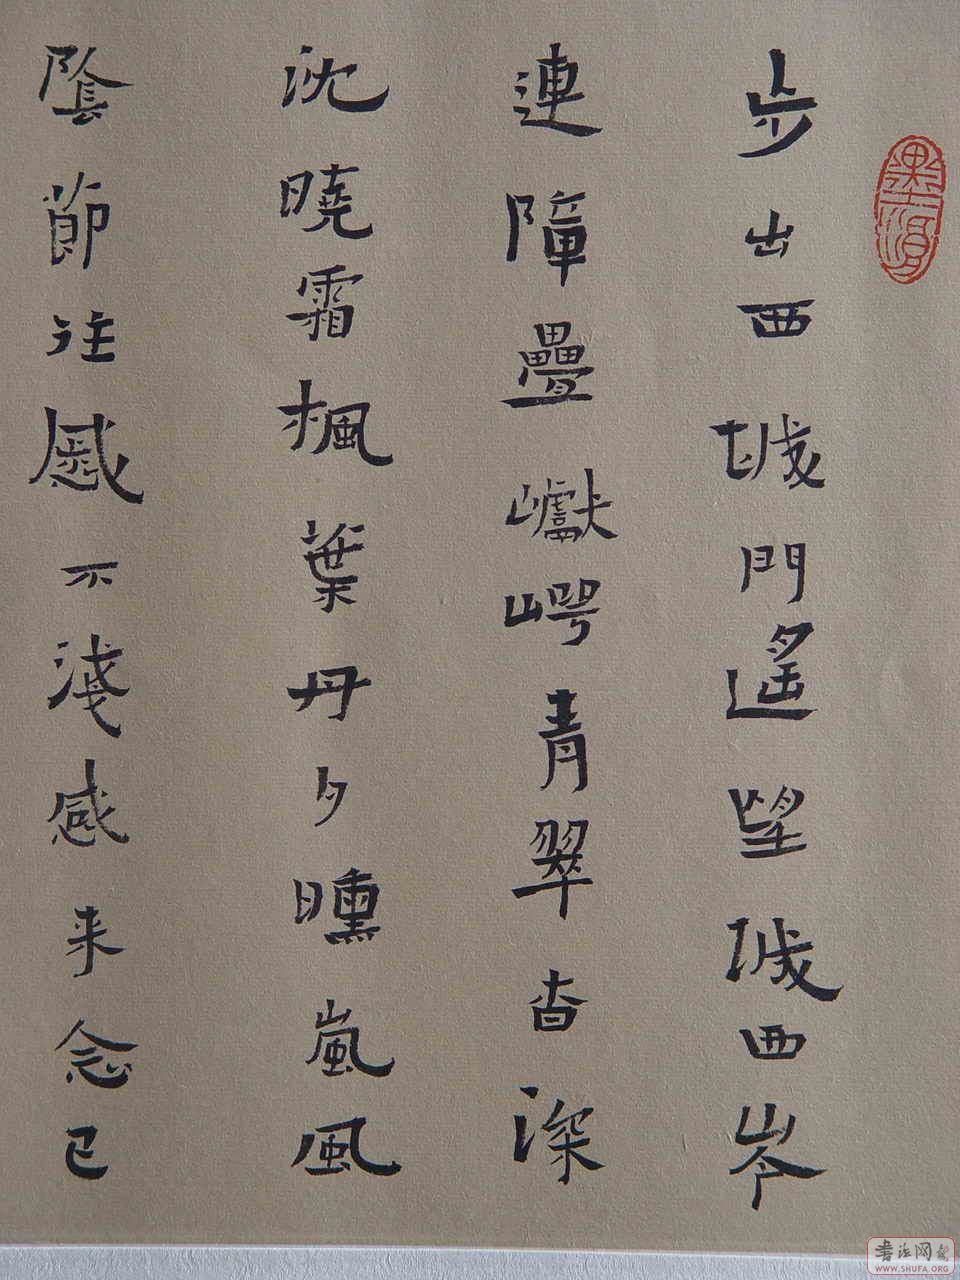 步出西城門遙望城西岑
連障疊巘崿青翠杳深
沈曉霜楓葉丹夕曛嵐風
陰節往慼不淺感来念已
書法網
WWW.SHUFA.ORG